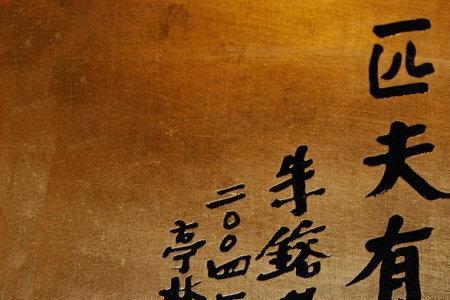 匹夫有
朱鎔
二〇〇四
亭林